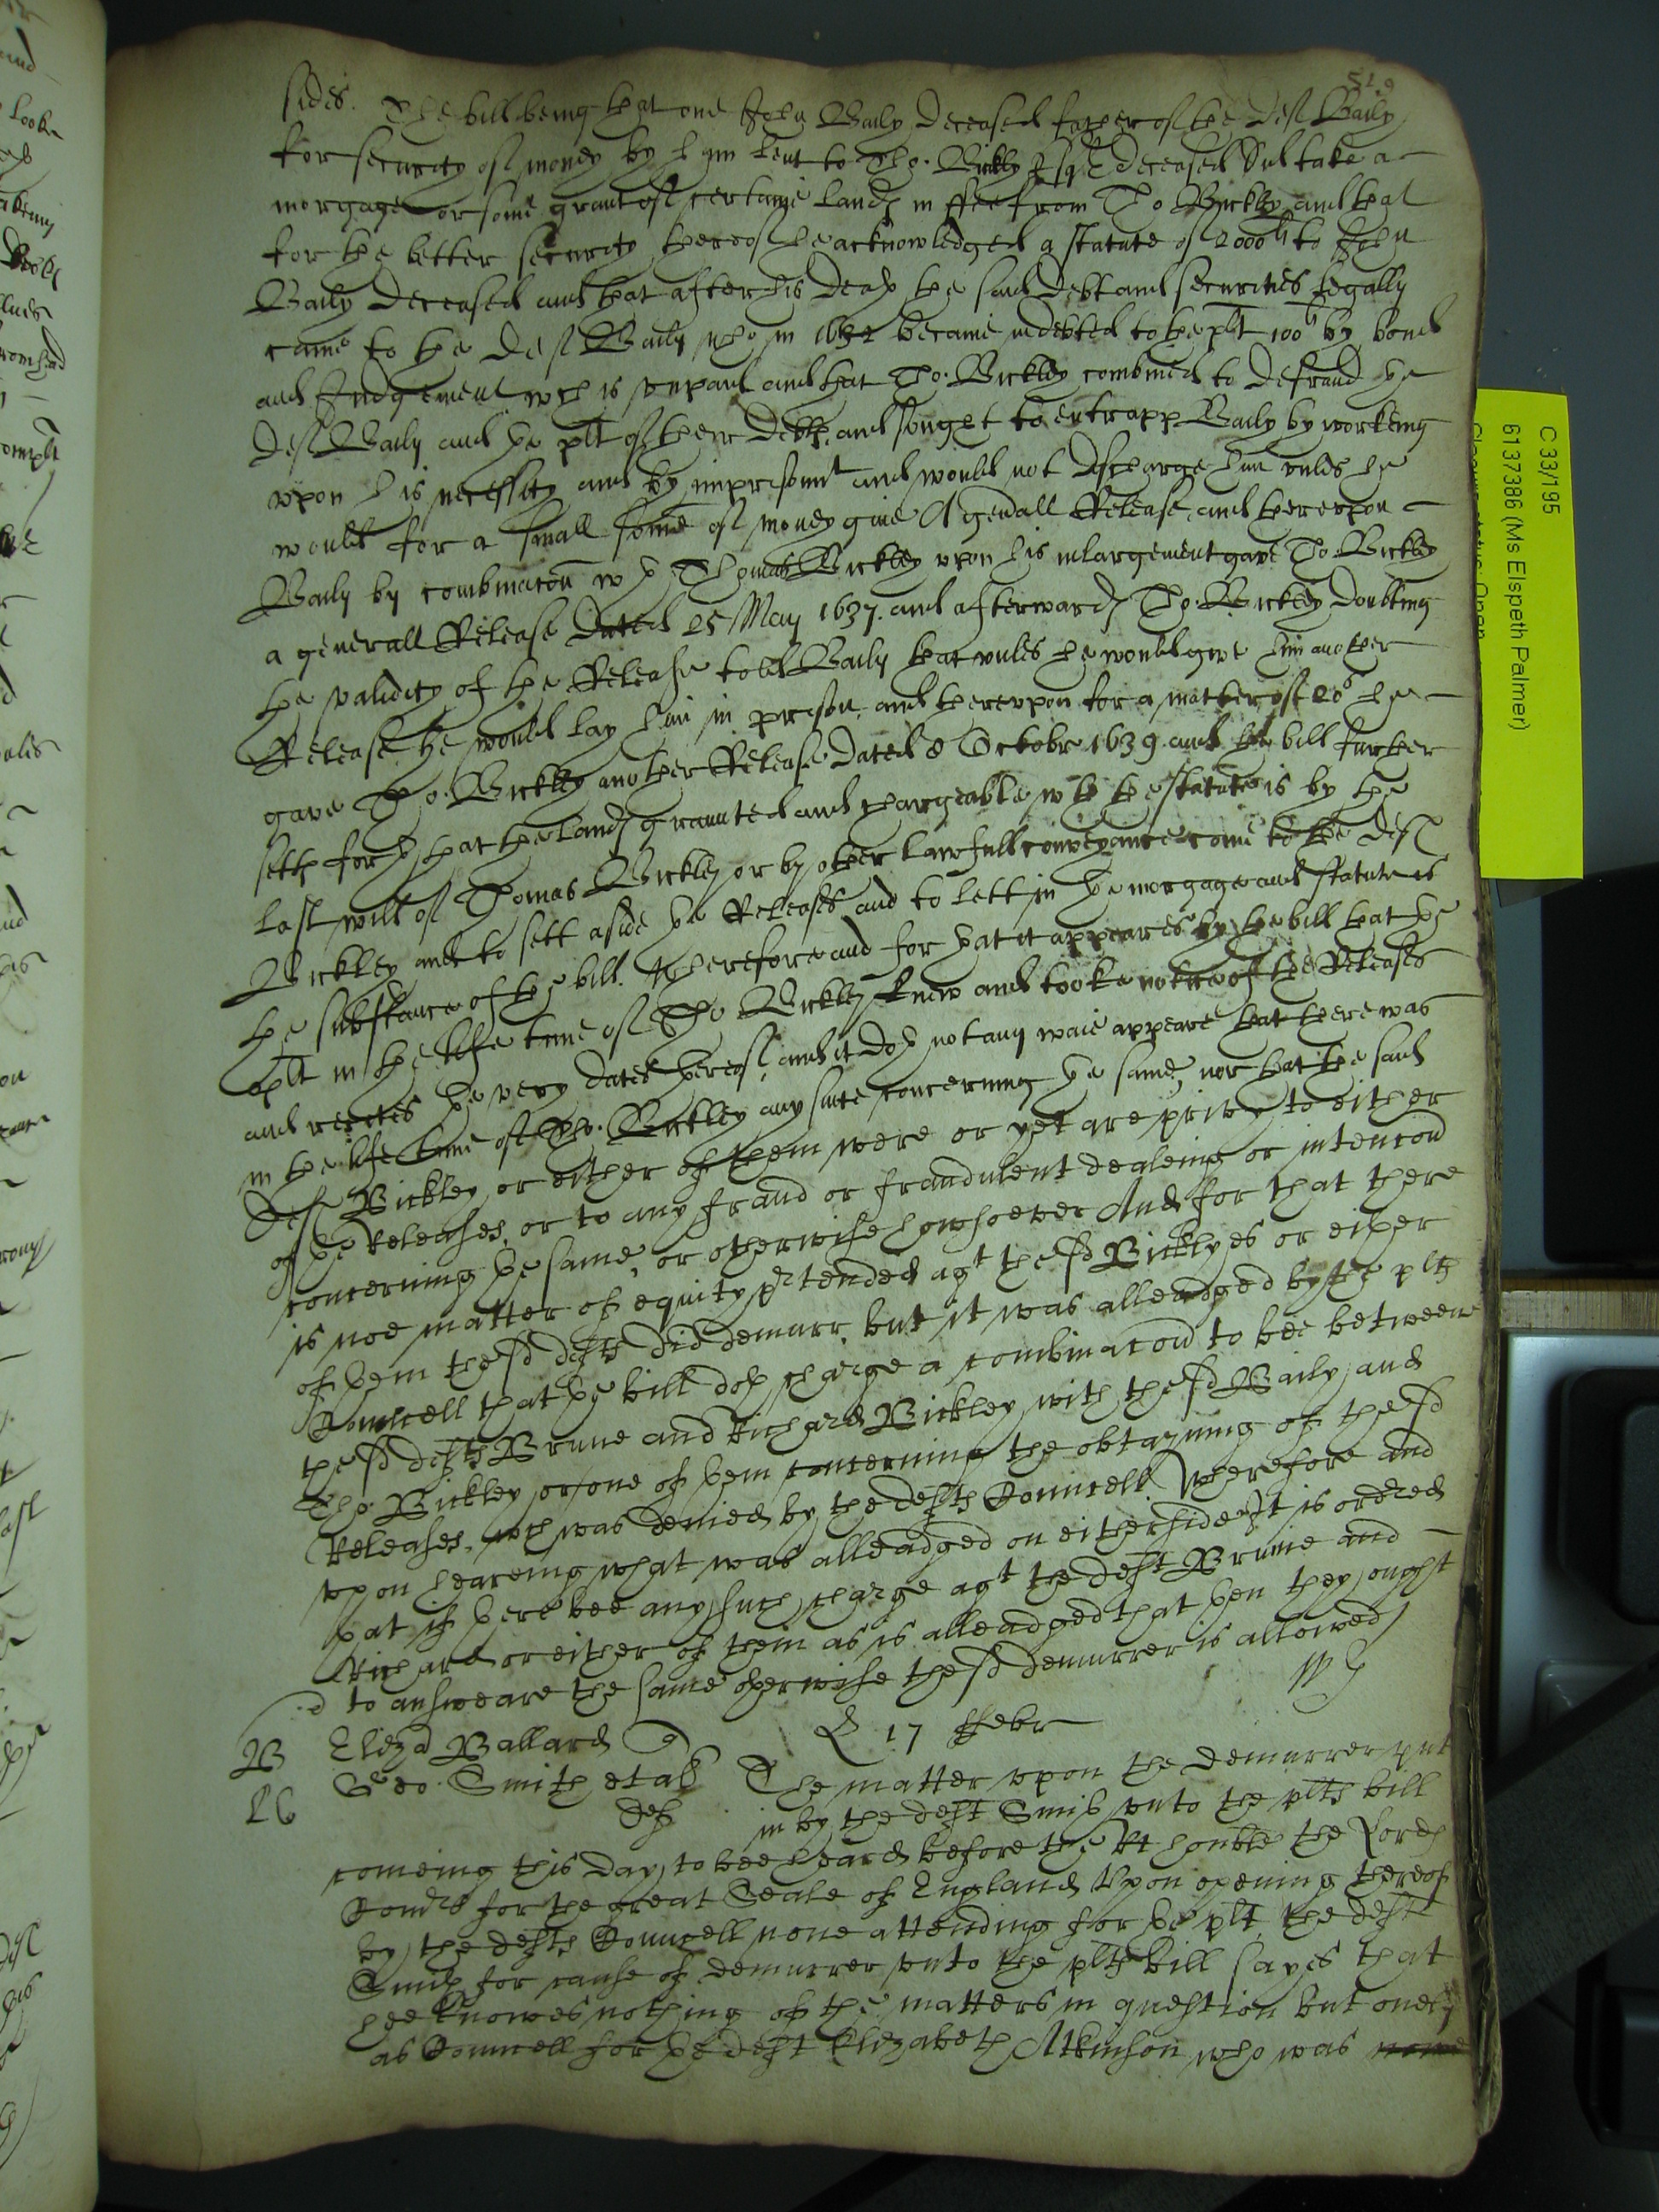 519
sides. The bill being that one John Baily deceased father of the deft Baily
for security of money by him lent to Tho. Bickley Esqr deceased did take a
morgage or some grant of certaine lands in ffee from Tho Bickley and that
for the better security thereof he acknowledged a statute of 2000li to John
Baily deceased and that after his death the said debt and securities legally
came to the deft Baily who in 1632 became indebted to the plt 100li by bond
and Judgement wch is unpaid and that Tho. Bickley combined to defraud the
deft Baily and the plt of their debts and sought to entrapp Baily by workeing
upon his necessity and by imprisonmt and would not discharge him unles he
would for a small some of money give A genall Release and thereupon
Baily by combinacon wth Thomas Bickley upon his inlargement gave Tho. Bickley
a generall Release dated 25 May 1637. and afterwards Tho. Bickley doubting
the validity of the Release told Baily that unles he would give him another
Release he would lay him in prison and thereupon for a matter of 20s he
gave Tho. Bickley another Release dated 8 October 1639. and the bill further
setts forth that the lands graunted and chargeable wth the statute is by the
last will of Thomas Bickley or by other lawfull conveyance come to the deft
Bickley and to sett aside the Releases and to lett in the morgage and statute is
the substance of the bill. Wherefore and for that it appeares by the bill that the
plt in the life time of Tho Bickley knew and tooke notice of the Releases
and recites the very dates thereof, and it doth not any waie appeare that there was
in the life time of Tho. Bickley any suite concerning the same, nor that the said
deft Bickley or either of them were or yet are privy to either
of the Releases, or to any fraud or fraudulent dealeing or intencon
concerning the same, or otherwise howsoever And for that there
is noe matter of equity prtended agt the sd Bicklyes or either
of them the sd defts did demurr, but it was alleadged by the plts
Councell that the bill doth charge a combinacon to bee betweene
the sd defts Brune and Richard Bickley with the sd Baily and
Tho. Bickley or one of them concerning the obtayning of the sd
Releases, wch was denied by the defts Councell Wherefore and
upon heareing what was alleadged on either side It is ordred
that if there bee any such charge agt the deft Brune and
Richard or either of them as is alleadged that then they ought
to answeare the same otherwise the sd demurrer is allowed
B Elizad Ballard 17 ffebr
Geo. Smith et al The matter upon the demurrer put
def in by the deft Smith unto the plts bill
comeing this day to bee heard before the Rt honble the Lords
Comrs for the great Seale of England Upon opening thereof
by the defts Councell none attending for the plt the deft
Smith for cause of demurrer unto the plts bill sayes that
hee knowes nothing of the matters in question but onely
as Councell for the deft Elizabeth Atkinson who was
C 33/195
6137386 (Ms Elspeth Palmer)